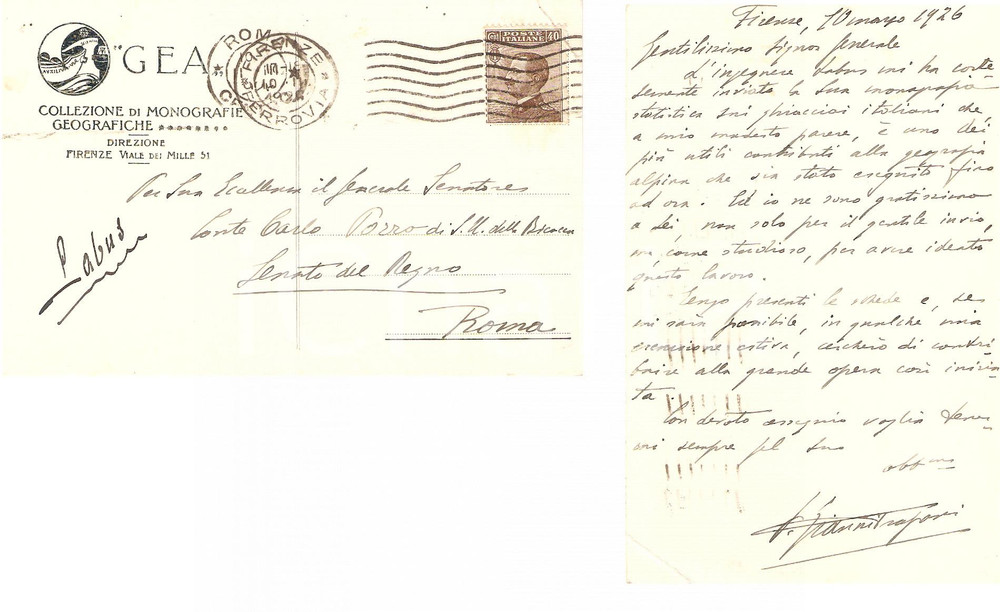 "GEA"
COLLEZIONE DI MONOGRAFIE
GEOGRAFICHE
DIREZIONE
FIRENZE VIALE DEI MILLE 51
ROMA
FIRENZE
FERROVIA
POSTE ITALIANE 40
Per Sua Eccellenza il Generale Senatore
Conte Carlo Porro di S. M. della Bicocca
Senato del Regno
Roma
Labus
Firenze, 10 marzo 1926
Gentilissimo Signor Generale
L'ingegnere Labus mi ha corte-
semente inviato la Sua monografia
statistica sui ghiacciai italiani che
a mio modesto parere, è uno dei
più utili contributi alla geografia
alpina che sia stato eseguito fino
ad ora. Ed io ne sono gratissimo
a Lei, non solo per il gentile invio,
ma, come studioso, per avere ideato
questo lavoro.
Tengo presenti le schede e, se
mi sarà possibile, in qualche mia
escursione estiva, cercherò di contri-
buire alla grande opera così inizia-
ta
Con devoto ossequio voglia tener-
mi sempre pel suo
obb.mo
Giannitrapani